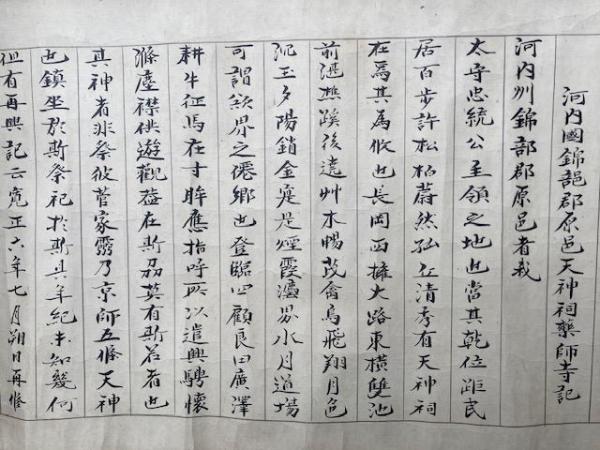 河内國錦部郡原邑天神祠藥師寺記
河内州錦部郡原邑者我
太守忠統公主領之地也當其乾位距民
居百步許松柏蔚然孤丘清秀有天神祠
在焉其為攸也長岡西擁大路東横雙池
前湛樵蹊後遶艸木暢茂禽鳥飛翔月色
沉玉夕陽銷金寔是煙霞瀛界水月道場
可謂欲界之僊鄉也登臨四顧良田廣澤
耕牛征馬在寸眸應指呼所以遣興騁懷
滌塵襟供遊觀蓋在斯莫有斯若者也
其神者非祭彼菅家靈乃京師五條天神
也鎮坐於斯祭祀於斯其年紀未知幾何
但有再興記云寬正六年七月朔日再修